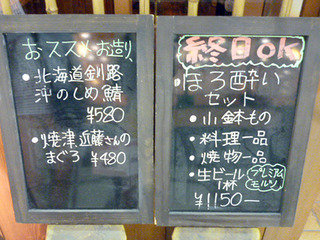 おススメお造り
・北海道釧路
沖のしめ鯖
¥580
・焼津近藤さんの
まぐろ ¥480
終日OK
ほろ酔い
セット
・小鉢もの
・料理一品
・焼物一品
・生ビール
1杯
プレミアム
モルツ
¥1150ー